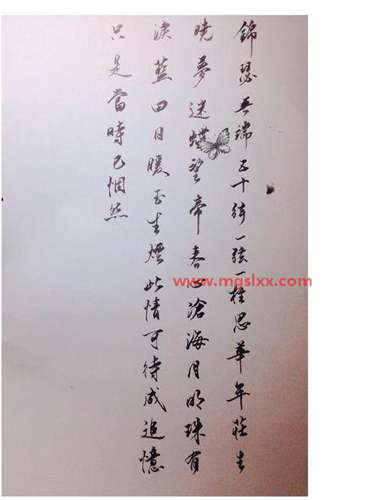 錦瑟無端五十絃一弦一柱思華年莊生
曉夢迷蝶望帝春心滄海月明珠有
淚藍田日暖玉生煙此情可待成追憶
只是當時已惘然
www.mgslxx.com